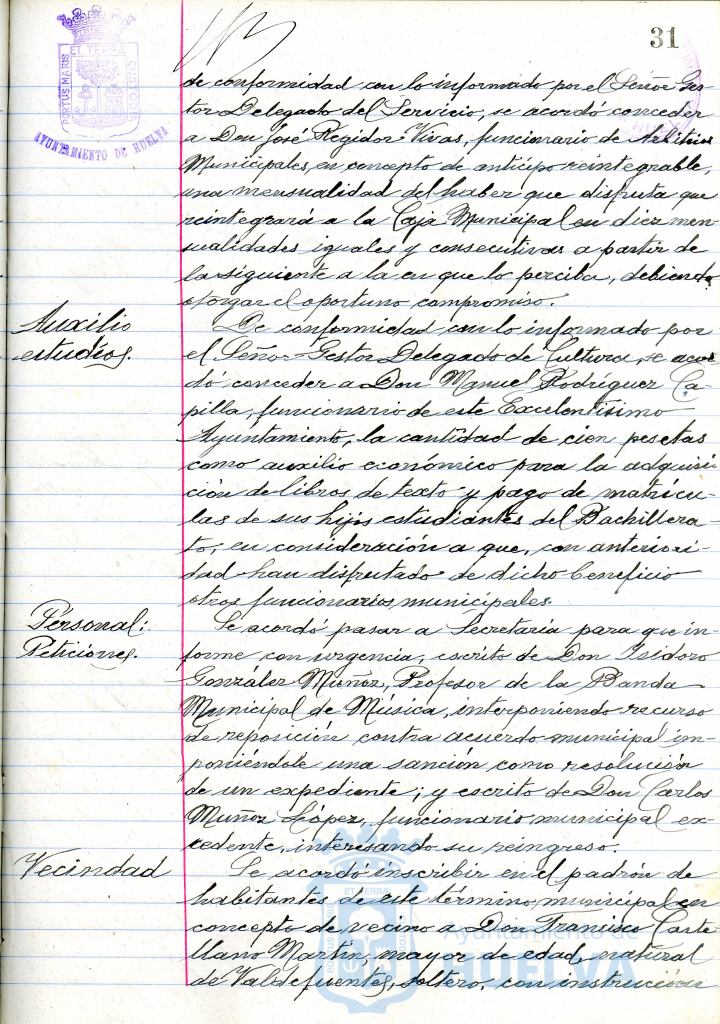 31
PORTUS MARIS ET TERRÆ CUSTODIA
AYUNTAMIENTO DE HUELVA
de conformidad con lo informado por el Señor Ges-
tor Delegado del Servicio, se acordó conceder
a Don José Regidor Vivas, funcionario de Arbitrios
Municipales, en concepto de anticipo reintegrable,
una mensualidad del haber que disfruta que
reintegrará a la Caja Municipal en diez men-
sualidades iguales y consecutivas a partir de
la siguiente a la en que lo perciba, debiendo
otorgar el oportuno compromiso.
Auxilio
estudios.
De conformidad con lo informado por
el Señor Gestor Delegado de Cultura, se acor-
dó conceder a Don Manuel Rodríguez Ca-
pilla, funcionario de este Excelentísimo
Ayuntamiento, la cantidad de cien pesetas
como auxilio económico para la adquisi-
ción de libros de texto y pago de matrícu-
las de sus hijos estudiantes del Bachillera-
to, en consideración a que, con anteriori-
dad han disfrutado de dicho beneficio
otros funcionarios municipales.
Personal:
Peticiones.
Se acordó pasar a Secretaría para que in-
forme con urgencia, escrito de Don Isidoro
González Muñoz, Profesor de la Banda
Municipal de Música, interponiendo recurso
de reposición contra acuerdo municipal im-
poniéndole una sanción como resolución
de un expediente; y escrito de Don Carlos
Muñoz López, funcionario municipal ex-
cedente, interesando su reingreso.
Vecindad
Se acordó inscribir en el padrón de
habitantes de este término municipal en
concepto de vecino a Don Francisco Caste-
llano Martín, mayor de edad, natural
de Valdefuentes, soltero, con instrucción
Ayuntamiento de
HUELVA